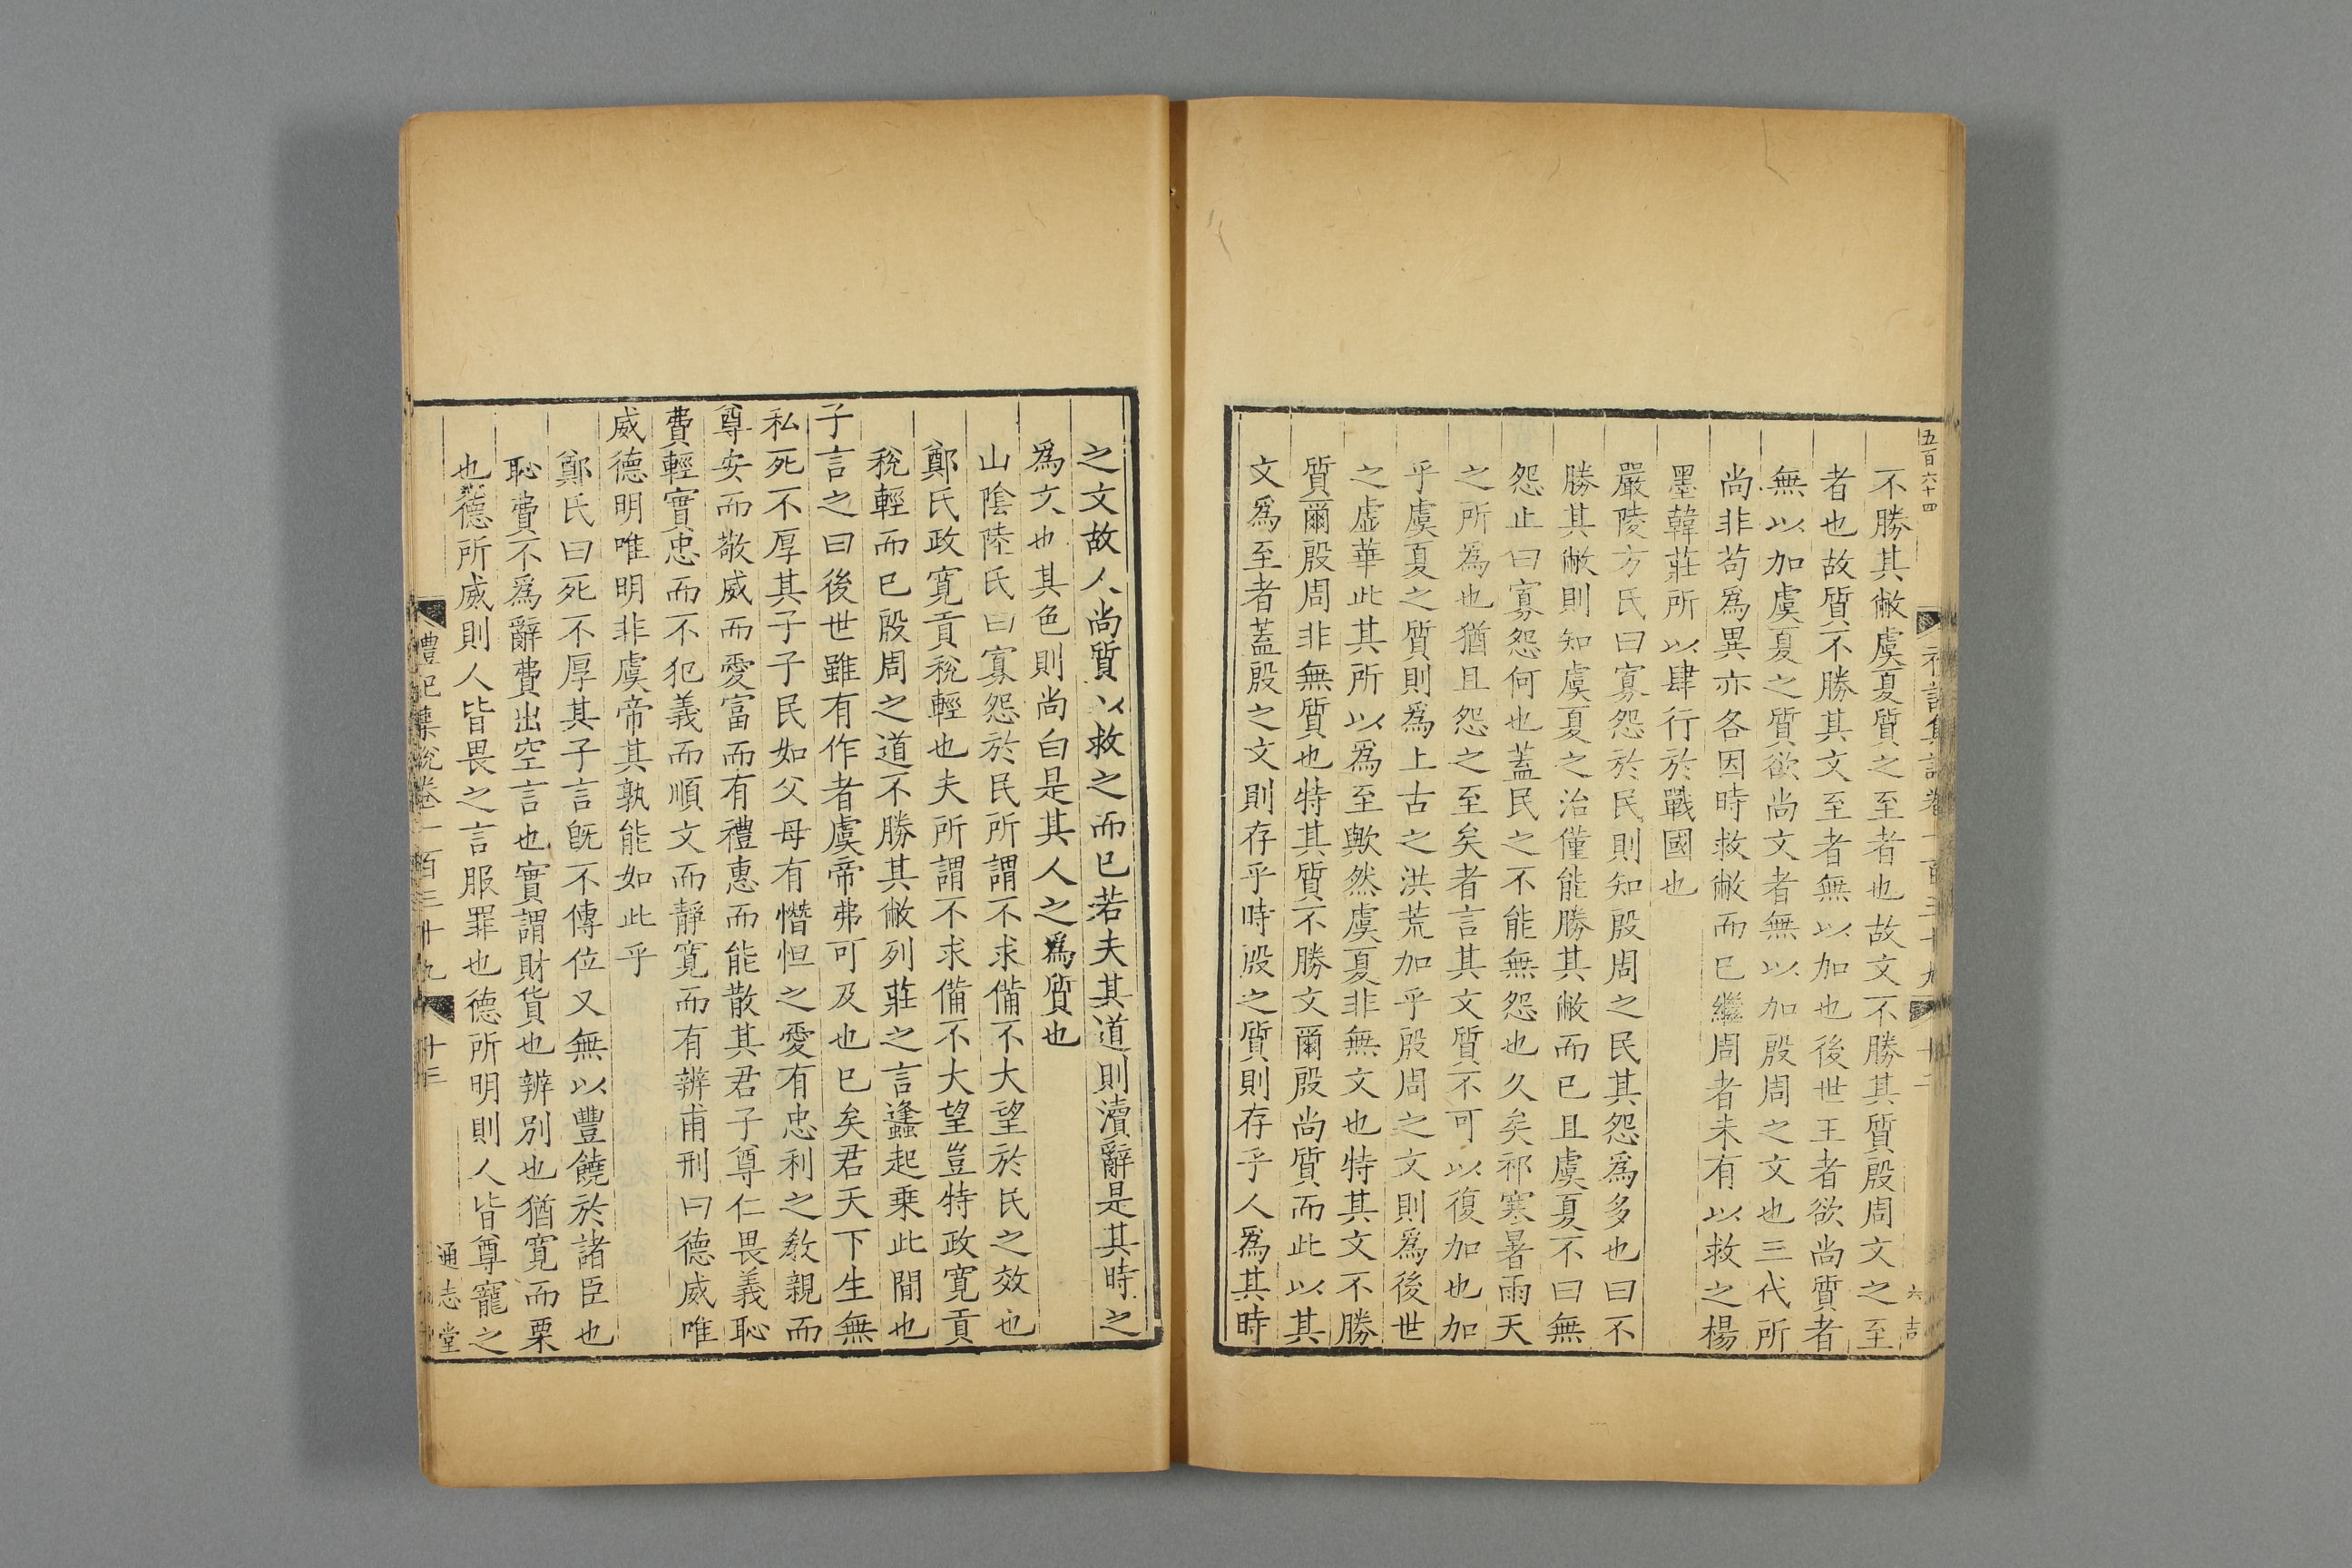 五百六十四
不勝其敝虞夏質之至者也故文不勝其質殷周文之至
者也故質不勝其文至者無以加也後世王者欲尚質者
無以加虞夏之質欲尚文者無以加殷周之文也三代所
尚非苟爲異亦各因時救敝而已繼周者未有以救之楊
墨韓莊所以肆行於戰國也
嚴陵方氏曰寡怨於民則知殷周之民其怨爲多也曰不
勝其敝則知虞夏之治僅能勝其敝而已且虞夏不曰無
怨止曰寡怨何也蓋民之不能無怨也久矣祁寒暑雨天
之所爲也猶且怨之至矣者言其文質不可以復加也加
乎虞夏之質則爲上古之洪荒加乎殷周之文則爲後世
之虛華此其所以爲至歟然虞夏非無文也特其文不勝
質爾殷周非無質也特其質不勝文爾殷尚質而此以其
文爲至者蓋殷之文則存乎時殷之質則存乎人爲其時
之文故人尚質以救之而已若夫其道則瀆辭是其時之
爲文也其色則尚白是其人之爲質也
山陰陸氏曰寡怨於民所謂不求備不大望於民之效也
鄭氏政寬貢稅輕也夫所謂不求備不大望豈特政寬貢
稅輕而已殷周之道不勝其敝列莊之言蠭起乘此間也
子言之曰後世雖有作者虞帝弗可及也已矣君天下生無
私死不厚其子子民如父母有憯怛之愛有忠利之敎親而
尊安而敬威而愛富而有禮惠而能散其君子尊仁畏義恥
費輕實忠而不犯義而順文而靜寬而有辨甫刑曰德威唯
威德明唯明非虞帝其孰能如此乎
鄭氏曰死不厚其子言旣不傳位又無以豐饒於諸臣也
恥費不爲辭費出空言也實謂財貨也辨別也猶寬而栗
也德所威則人皆畏之言服罪也德所明則人皆尊寵之
禮記集說卷一百三十九 十三
通志堂